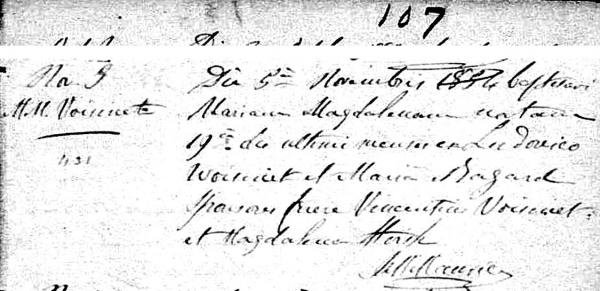 107
No. 5
M.M. Voisinet
Die 5a Novembris 1854 baptizavi
Mariam Magdalenam natam
19a die ultimi mensis ex Ludovico
Voisinet et Maria Bagard
Sponsores fuere Vincentius Voisinet
et Magdalena